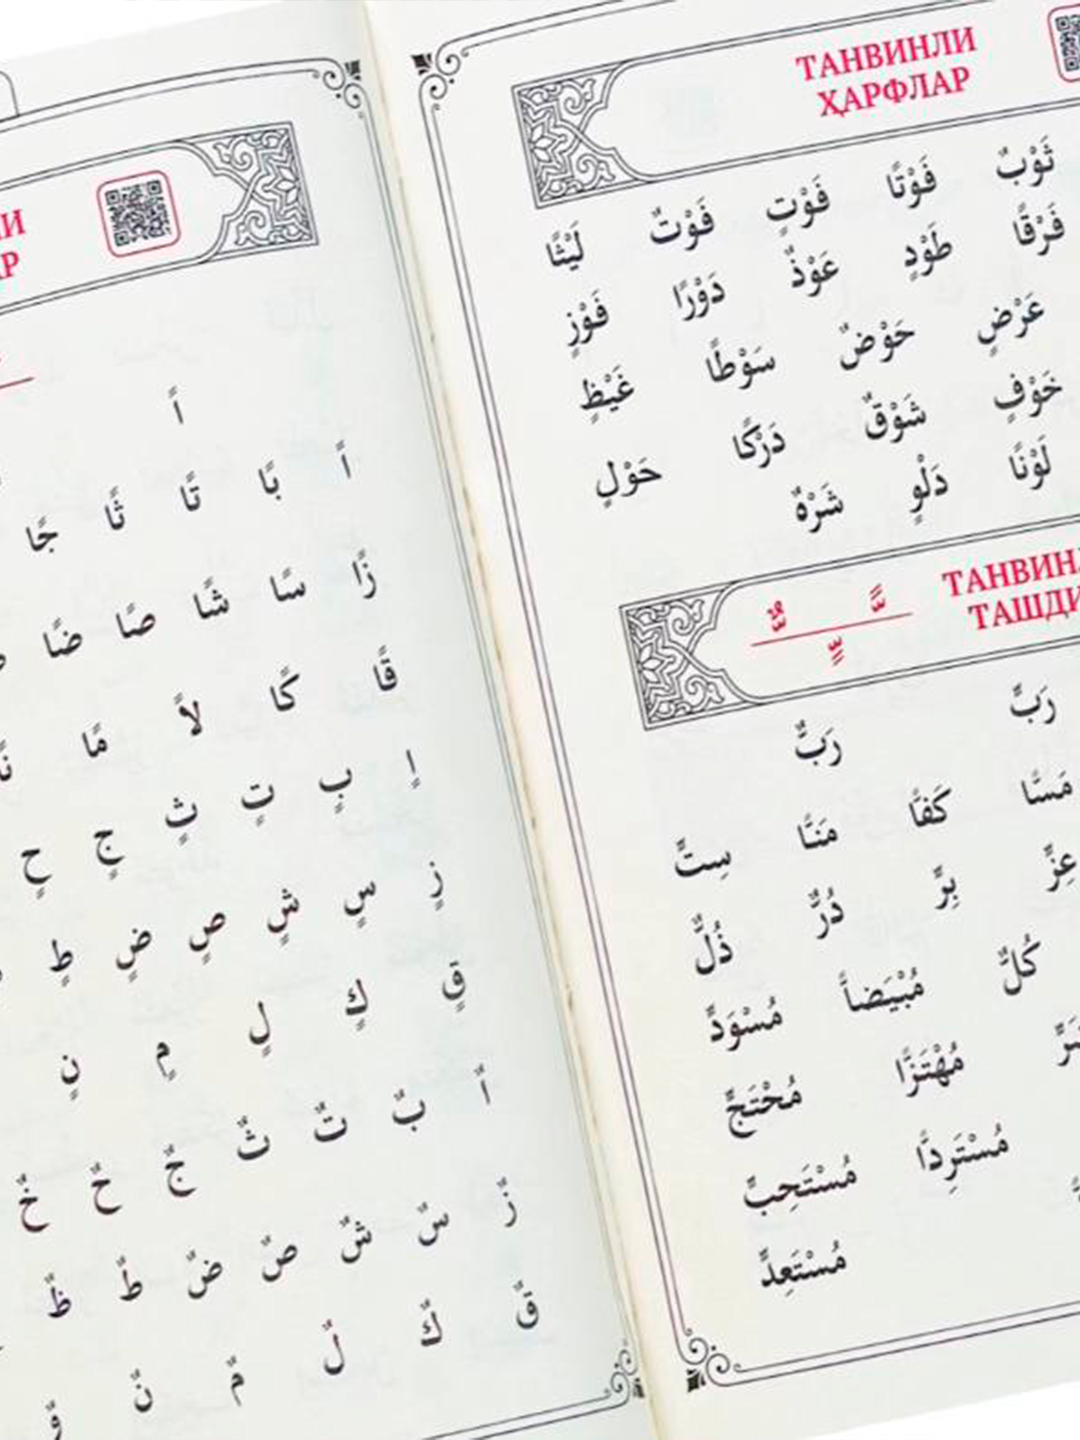 اً
اً بًا تًا ثًا جًا
زًا سًا شًا صًا ضًا
قًا كًا لاً مًا نًا
اٍ بٍ تٍ ثٍ جٍ حٍ
زٍ سٍ شٍ صٍ ضٍ طٍ
قٍ كٍ لٍ مٍ نٍ
اٌ بٌ تٌ ثٌ جٌ حٌ خٌ
زٌ سٌ شٌ صٌ ضٌ طٌ ظٌ
قٌ كٌ لٌ مٌ نٌ وٌ
ТАНВИНЛИ
ҲАРФЛАР
ثَوْبٌ فَوْتًا فَوْتٍ فَوْتٌ لَيْثًا
فَرْقًا طَوْدٍ عَوْذٌ دَوْرًا فَوْزٍ
عَرْضٍ حَوْضٌ سَوْطًا غَيْظٍ
خَوْفٍ شَوْقٌ دَرْكًا حَوْلٍ
لَوْنًا دَلْوٍ شَرْهٌ
ТАНВИН
ТАШДИ
رَبٍّ رَبٌّ
مَسًّا كَفًّا مَنًّا سِتٍّ
عِزٍّ بِرٍّ دُرٌّ ذُلٌّ
كُلٌّ مُبْيَضاًّ مُسْوَدًّ
مُهْتَزًّا مُحْتَجٌّ
مُسْتَرِدًّا مُسْتَحِبٍّ
مُسْتَعِدٍّ